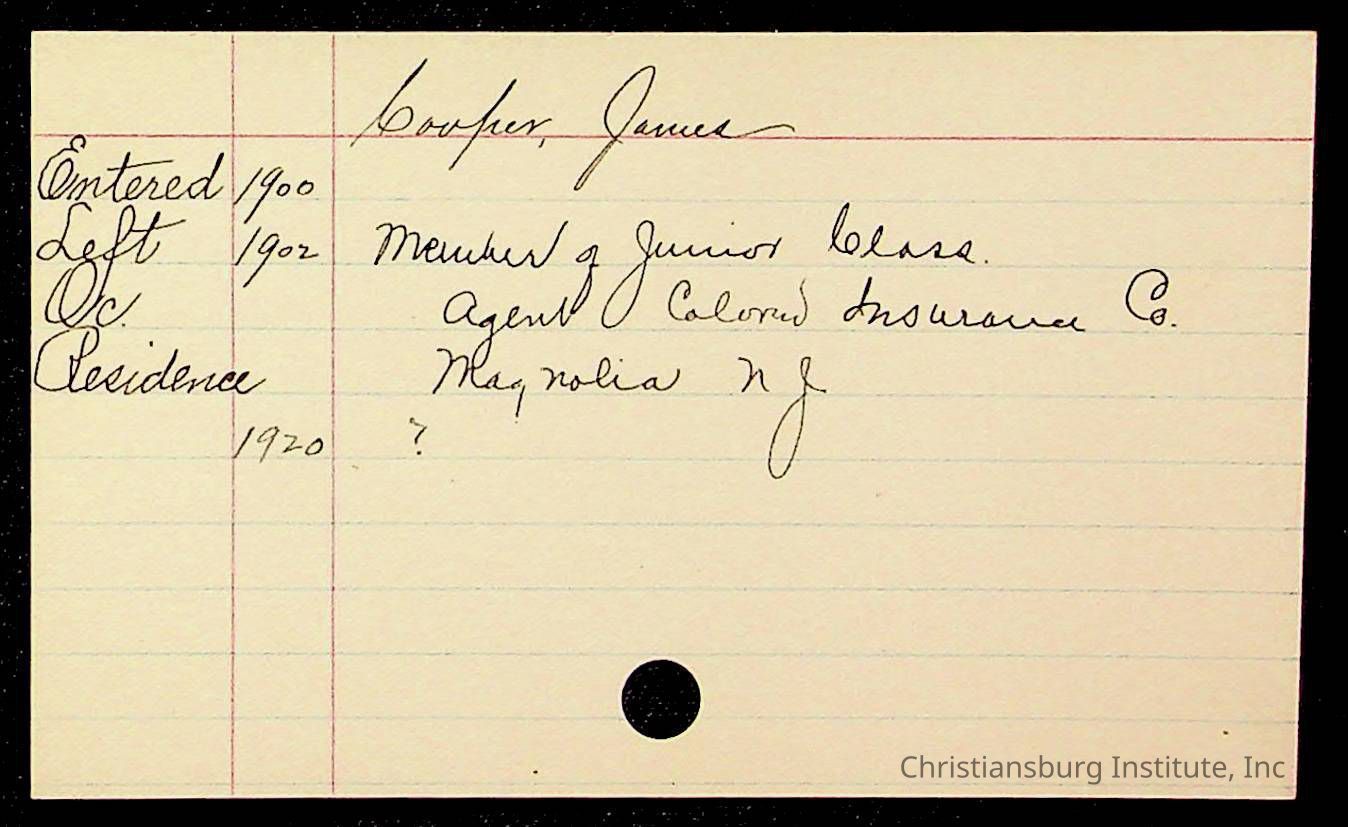 Cooper, James
Entered 1900
Left 1902 Member of Junior Class.
Oc. Agent Colored Insurance Co.
Residence Magnolia N J
1920 ?
Christiansburg Institute, Inc